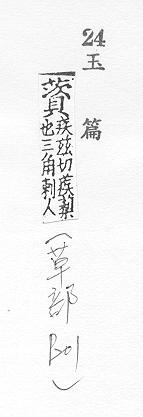 24 玉篇
「薋疾兹切蒺梨
也三角刺人」
(草部 B01)